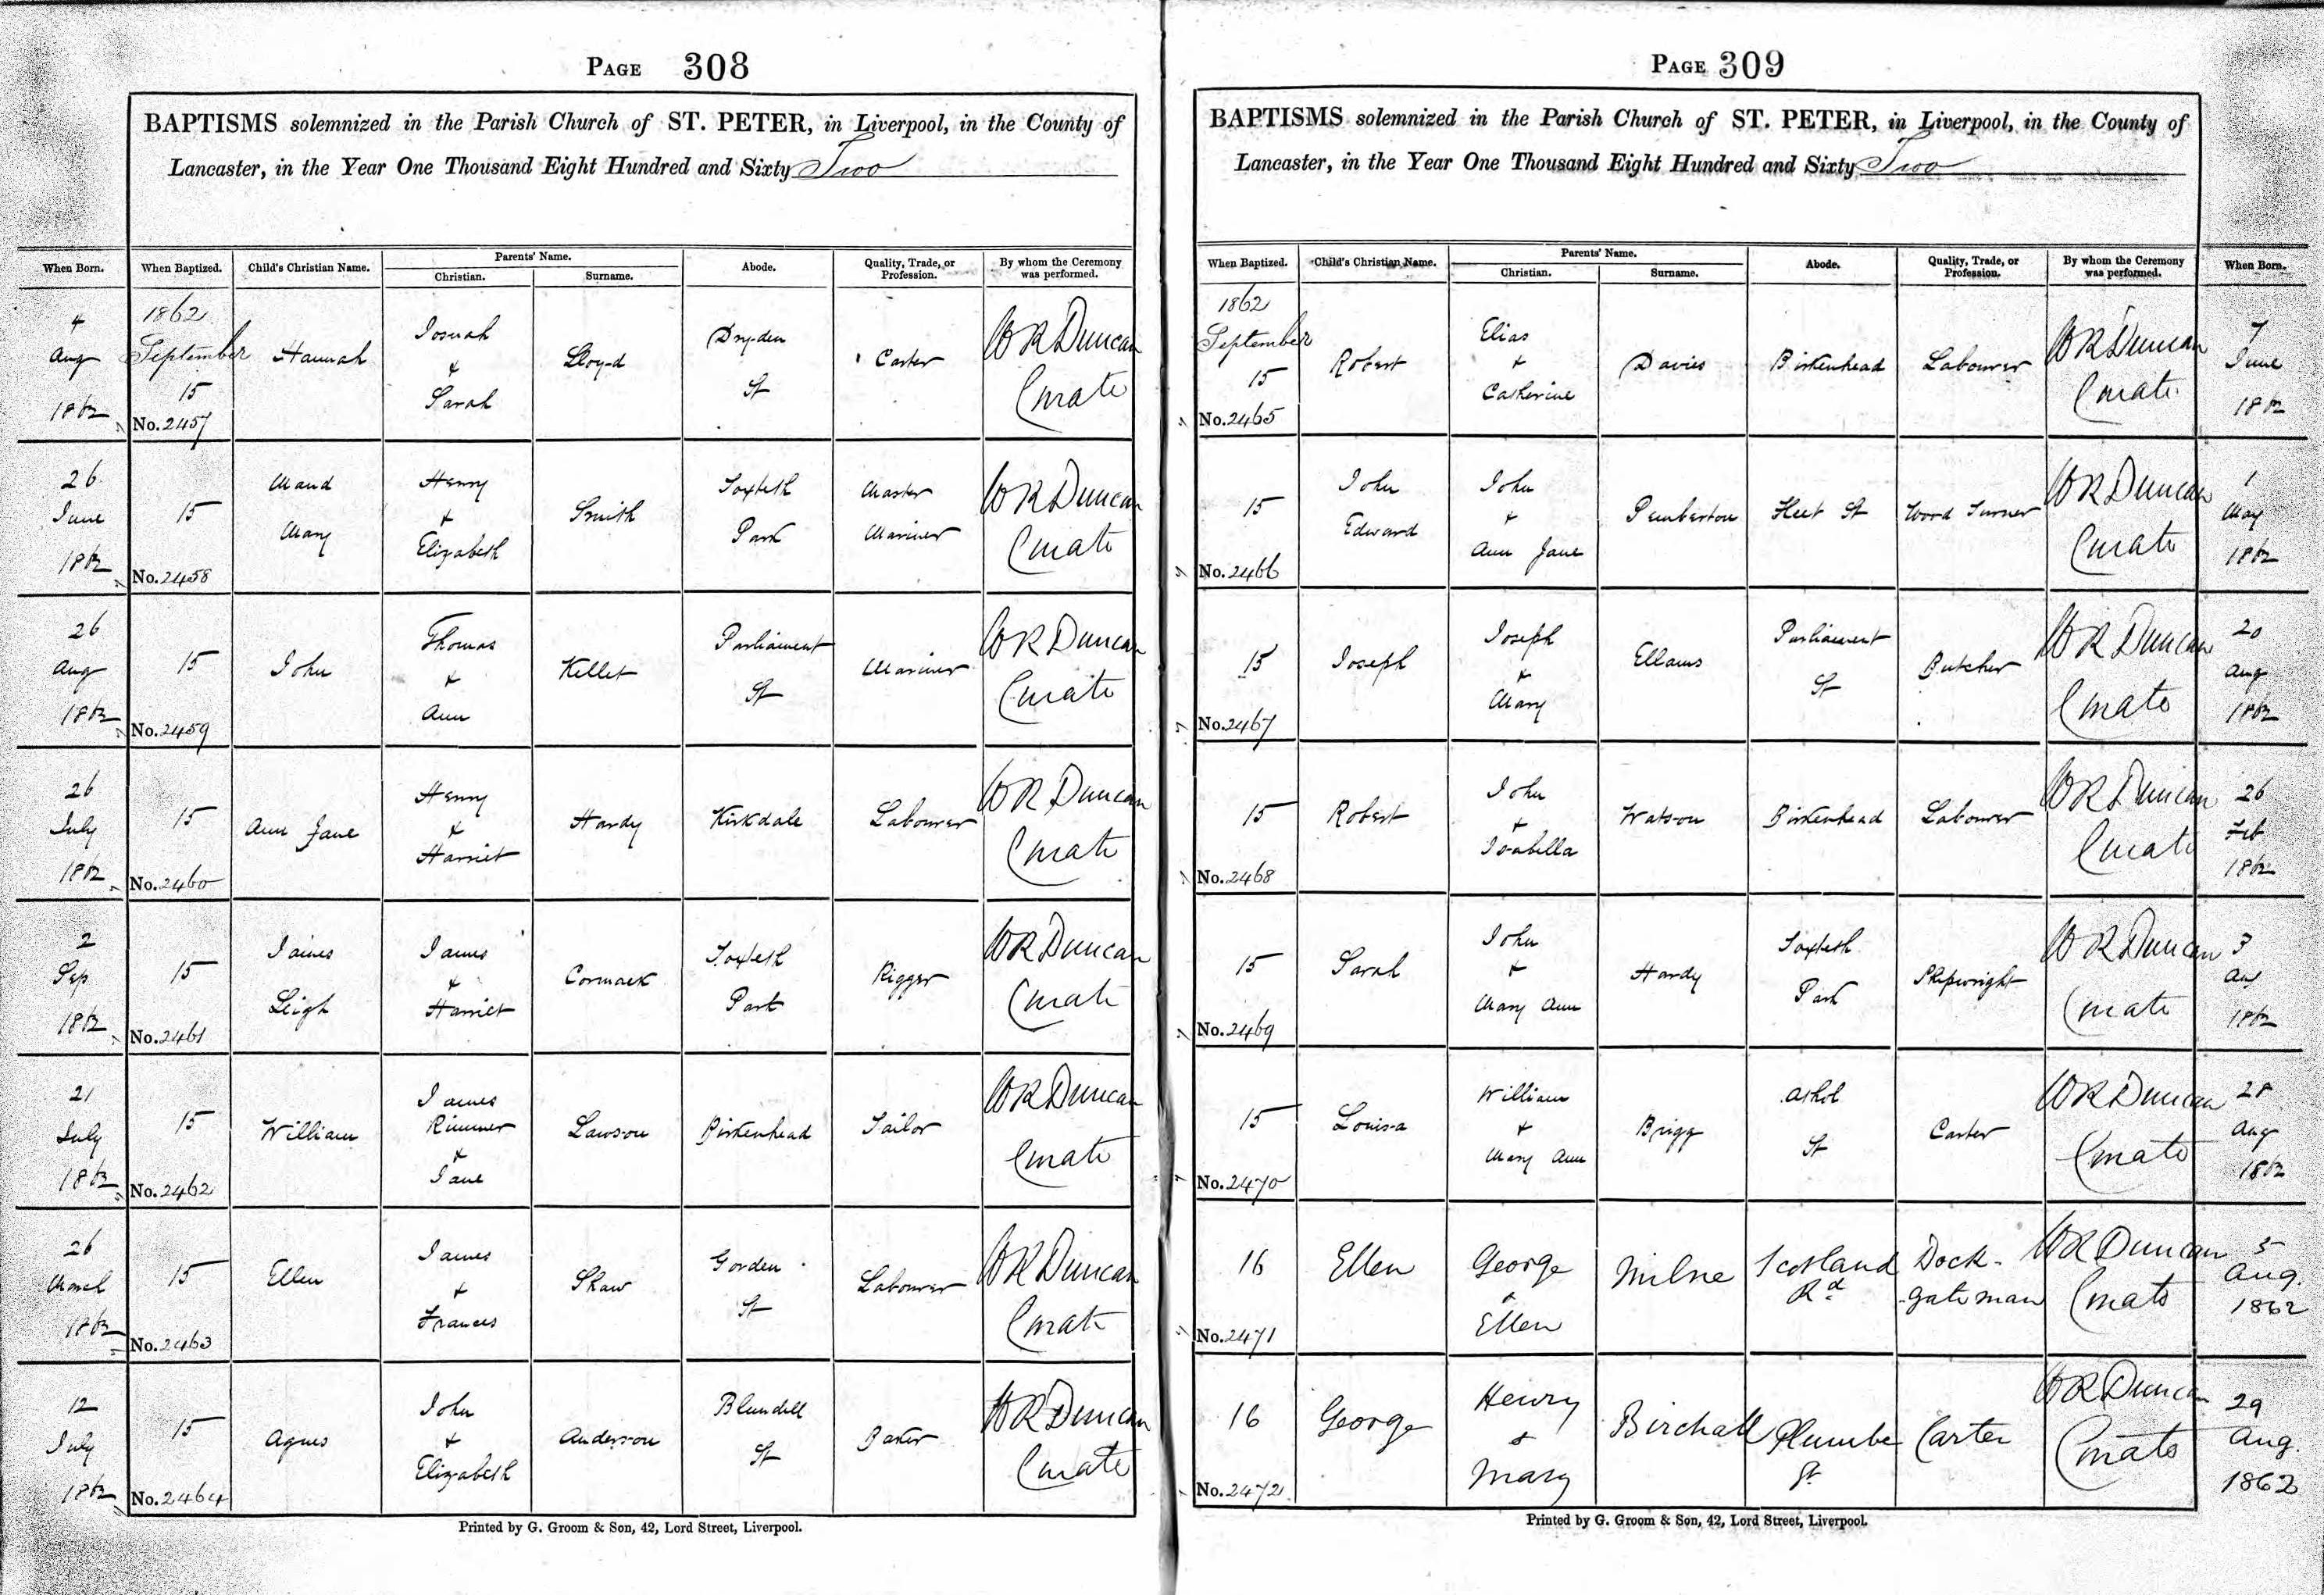 PAGE 308
BAPTISMS solemnized in the Parish Church of ST. PETER, in Liverpool, in the County of
Lancaster, in the Year One Thousand Eight Hundred and Sixty Two
When Born. When Baptized. Child's Christian Name. Parents' Name. Christian. Surname. Abode. Quality, Trade, or Profession. By whom the Ceremony was performed.
4 Aug 1862 1862 September 15 No. 2457 Hannah Josuah & Sarah Lloyd Dryden St Carter W R Duncan Curate
26 June 1862 15 No. 2458 Maud Mary Henry & Elizabeth Smith Toxteth Park Master Mariner W R Duncan Curate
26 Aug 1862 15 No. 2459 John Thomas & Ann Kellet Parliament St Mariner W R Duncan Curate
26 July 1862 15 No. 2460 Ann Jane Henry & Harriet Hardy Kirkdale Labourer W R Duncan Curate
2 Sep 1862 15 No. 2461 James Leigh James & Harriet Cormack Toxteth Park Rigger W R Duncan Curate
21 July 1862 15 No. 2462 William James Rimmer & Jane Lawson Birkenhead Tailor W R Duncan Curate
26 March 1862 15 No. 2463 Ellen James & Frances Shaw Gorden St Labourer W R Duncan Curate
12 July 1862 15 No. 2464 Agnes John & Elizabeth Anderson Blundell St Baker W R Duncan Curate
Printed by G. Groom & Son, 42, Lord Street, Liverpool.
PAGE 309
BAPTISMS solemnized in the Parish Church of ST. PETER, in Liverpool, in the County of
Lancaster, in the Year One Thousand Eight Hundred and Sixty Two
When Baptized. Child's Christian Name. Parents' Name. Christian. Surname. Abode. Quality, Trade, or Profession. By whom the Ceremony was performed. When Born.
1862 September 15 No. 2465 Robert Elias & Catherine Davies Birkenhead Labourer W R Duncan Curate 7 June 1862
15 No. 2466 John Edward John & Ann Jane Pemberton Fleet St Wood Turner W R Duncan Curate 1 May 1862
15 No. 2467 Joseph Joseph & Mary Ellams Parliament St Butcher W R Duncan Curate 20 Aug 1862
15 No. 2468 Robert John & Isabella Watson Birkenhead Labourer W R Duncan Curate 26 Feb 1862
15 No. 2469 Sarah John & Mary Ann Hardy Toxteth Park Shipwright W R Duncan Curate 3 1862
15 No. 2470 Louisa William & Mary Ann Brigg Athol St Carter W R Duncan Curate 28 Aug 1862
16 No. 2471 Ellen George & Ellen Milne Scotland Rd Dock-gateman W R Duncan Curate 5 Aug. 1862
16 No. 2472 George Henry & Mary Birchall Plumbe St Carter W R Duncan Curate 29 Aug. 1862
Printed by G. Groom & Son, 42, Lord Street, Liverpool.